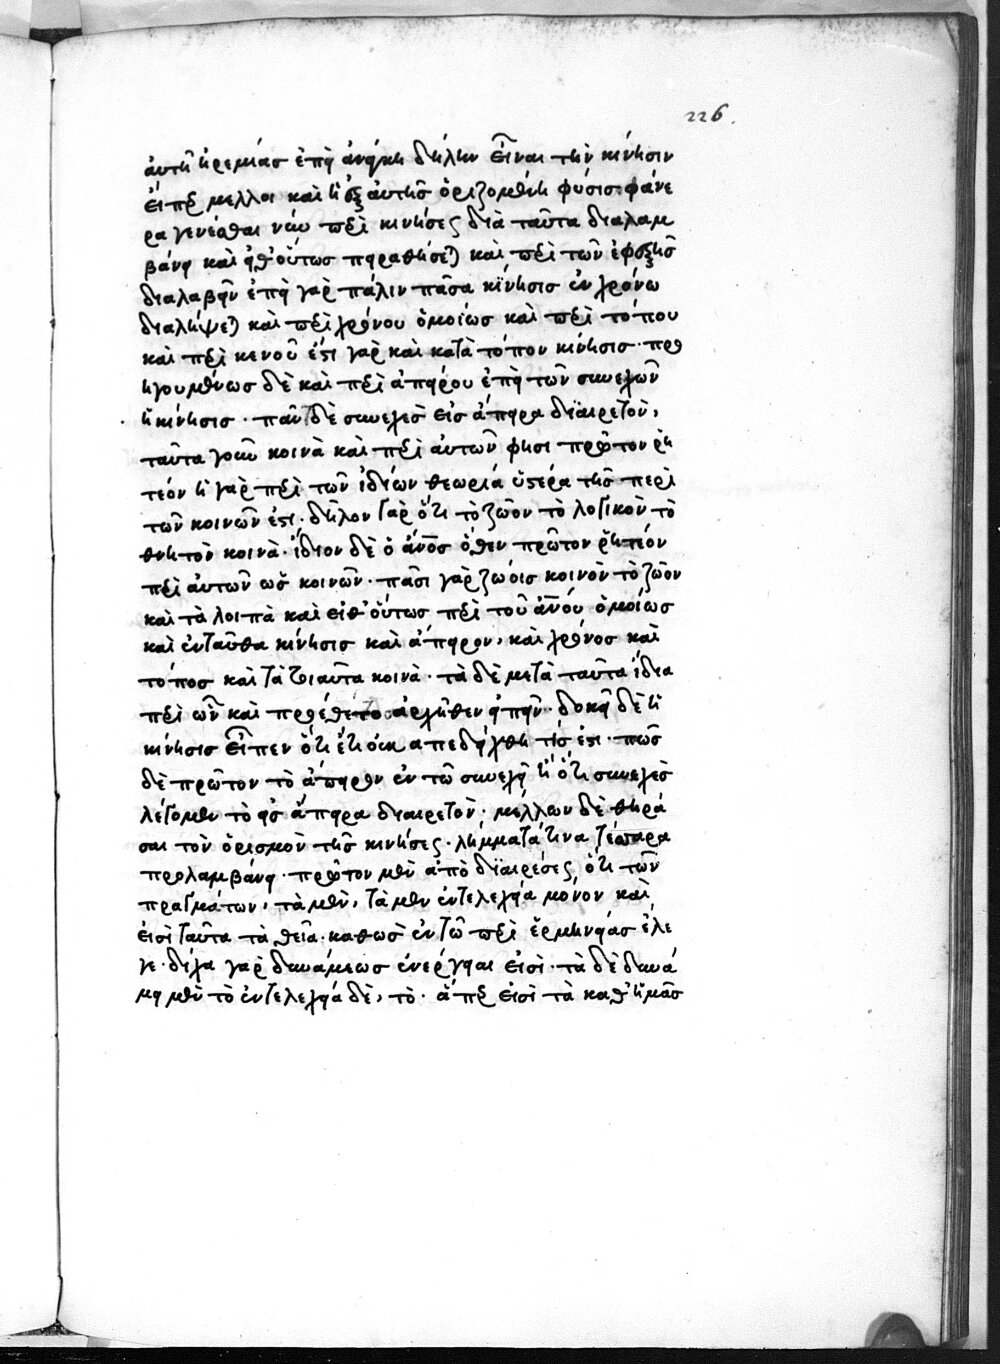 226.
αὐτὴ ἠρεμίας ἐπεὶ ἀνάγκη δήλην εἶναι τὴν κίνησιν
εἴπερ μέλλοι καὶ ἡ ἐξ αὐτῆς ὁριζομένη φύσις φανε
ρὰ γενέσθαι νῦν περὶ κινήσεως διὰ ταῦτα διαλαμ
βάνει καὶ εἶθ' οὕτως πειραθήσεται καὶ περὶ τῶν ἐφεξῆς
διαλαβεῖν ἐπεὶ γὰρ πάλιν πᾶσα κίνησις ἐν χρόνω
διαλήψεται καὶ περὶ χρόνου ὁμοίως καὶ περὶ τόπου
καὶ περὶ κενοῦ ἔστι γὰρ καὶ κατὰ τόπον κίνησις · προ
ηγουμένως δὲ καὶ περὶ ἀπείρου ἐπεὶ τῶν συνεχῶν
ἡ κίνησις · πᾶν δὲ συνεχὲς εἰς ἄπειρα διαιρετὸν,
ταῦτα γοῦν κοινὰ καὶ περὶ αὐτῶν φησι πρῶτον ῥη
τέον ἡ γὰρ περὶ τῶν ἰδίων θεωρία ὑστέρα τῆς περὶ
τῶν κοινῶν ἐστι · δῆλον γὰρ ὅτι τὸ ζῶον τὸ λογικὸν τὸ
θνητὸν κοινὰ · ἴδιον δὲ ὁ ἄνος ὅθεν πρῶτον ῥητέον
περὶ αὐτῶν ὡς κοινῶν · πᾶσι γὰρ ζώοις κοινὸν τὸ ζῶον
καὶ τὰ λοιπὰ καὶ εἶθ' οὕτως περὶ τοῦ ἀνου ὁμοίως
καὶ ἐνταῦθα κίνησις καὶ ἄπειρον, καὶ χρόνος καὶ
τόπος καὶ τὰ τοιαῦτα κοινὰ · τὰ δὲ μετὰ ταῦτα ἴδια
περὶ ὧν καὶ προέθετο ἀρχῆθεν εἰπεῖν · δοκεῖ δὲ ἡ
κίνησις εἶπεν ὅτι ἔτι οὐκ ἀπεδείχθη τίς ἐστι · πῶς
δὲ πρῶτον τὸ ἄπειρον ἐν τῶ συνεχεῖ ἢ ὅτι συνεχὲς
λέγομεν τὸ εἰς ἄπειρα διαιρετὸν · μέλλων δὲ θηρά
σαι τὸν ὁρισμὸν τῆς κινήσεως · λήμματά τινα τέσσαρα
προλαμβάνει · πρῶτον μὲν ἀπὸ διαιρέσεως ὅτι τῶν
πραγμάτων, τὰ μὲν, τὰ μὲν ἐντελεχεία μόνον καὶ
εἰσὶ ταῦτα τὰ θεῖα · καθὼς ἐν τῶ περὶ ἑρμηνείας ἔλε
γε · δίχα γὰρ δυνάμεως ἐνέργειαι εἰσὶ · τὰ δὲ δυνά
μει μὲν τὸ ἐντελεχεία δὲ, τὸ · ἅπερ εἰσὶ τὰ καθ' ἡμᾶς